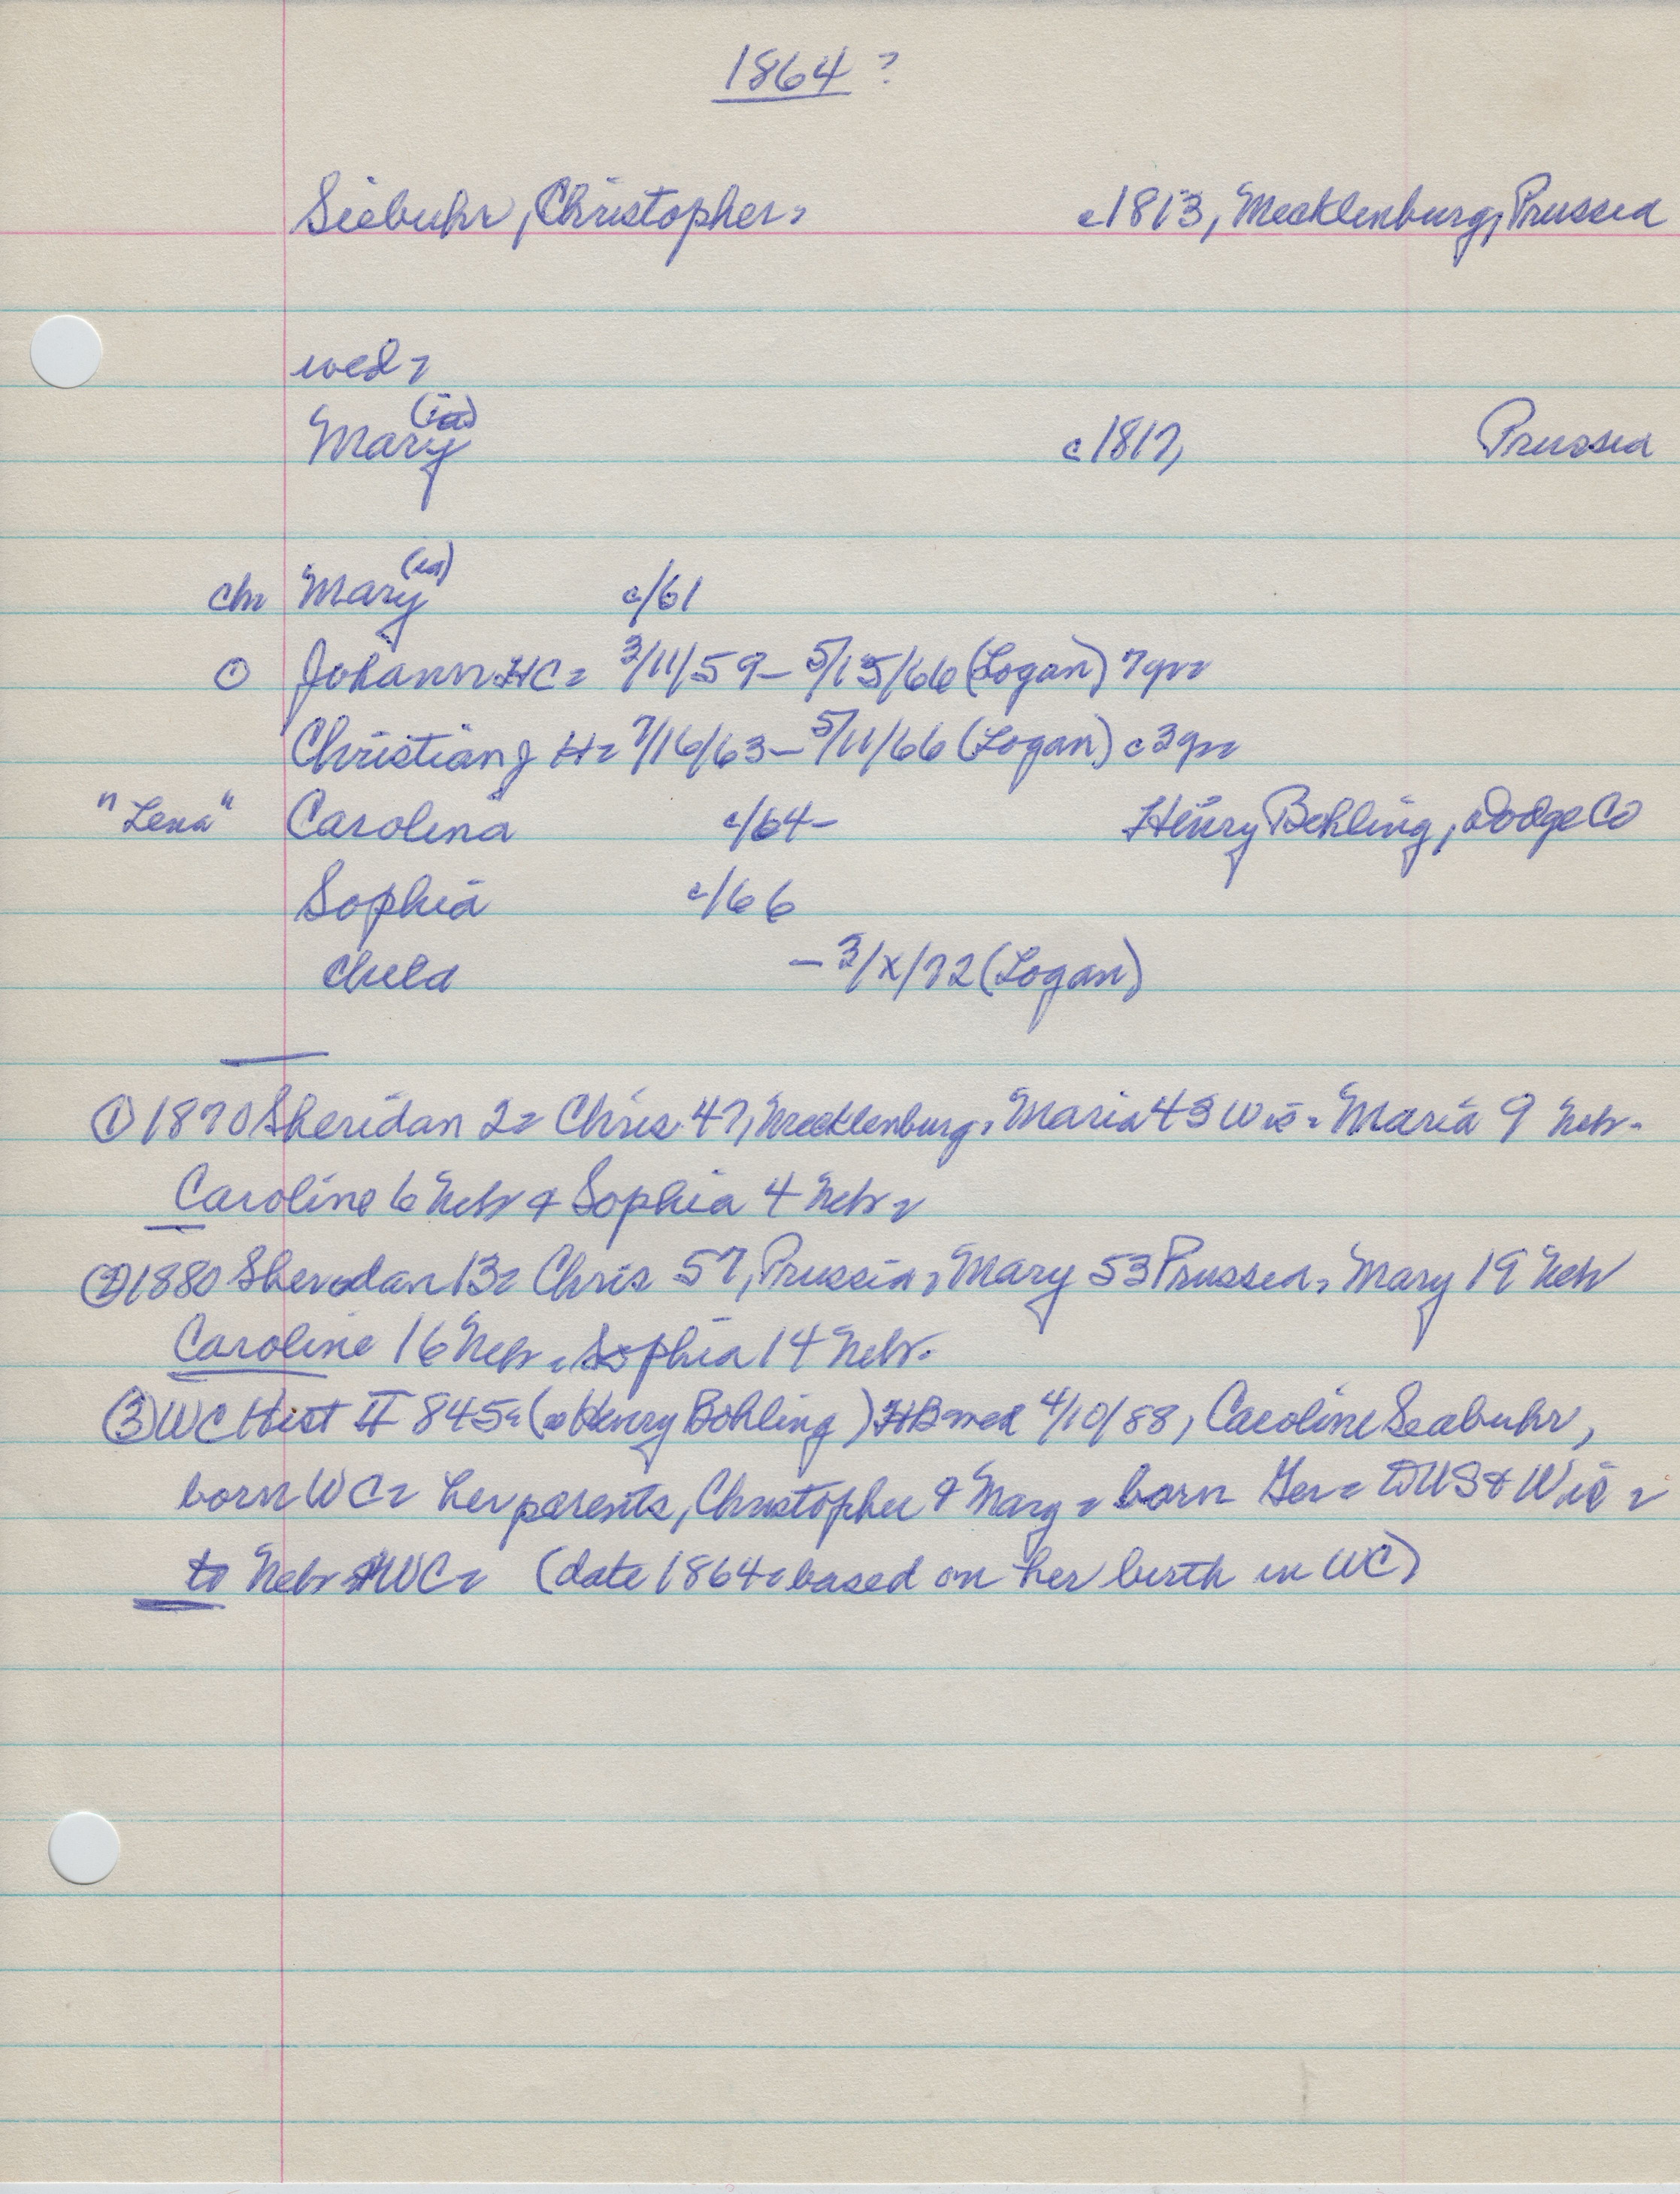 1864 ?
Siebuhr, Christopher, c1813, Mecklenburg, Prussia
wed,
Mary (ia) c1817, Prussia
ch Mary (ia) c/61
① Johann HC= 3/11/59 - 5/15/66 (Logan) 7yr
Christian J H= 7/16/63 - 5/11/66 (Logan) c3yr
"Lena" Carolina c/64- Henry Bohling, Dodge Co
Sophia c/66
child - 3/x/72 (Logan)
① 1870 Sheridan 2= Chris 47, Mecklenburg, Maria 43 Wis= Maria 9 Neb-
Caroline 6 Neb & Sophia 4 Neb
② 1880 Sheridan 13= Chris 57, Prussia, Mary 53 Prussia, Mary 19 Neb
Caroline 16 Neb, Sophia 14 Neb.
③ WC Hist II 845= (Henry Bohling) HB wed 4/10/88, Caroline Seabuhr,
born WC= her parents, Christopher & Mary= born Ger= US & Wis
to Neb WC= (date 1864=based on her birth in WC)